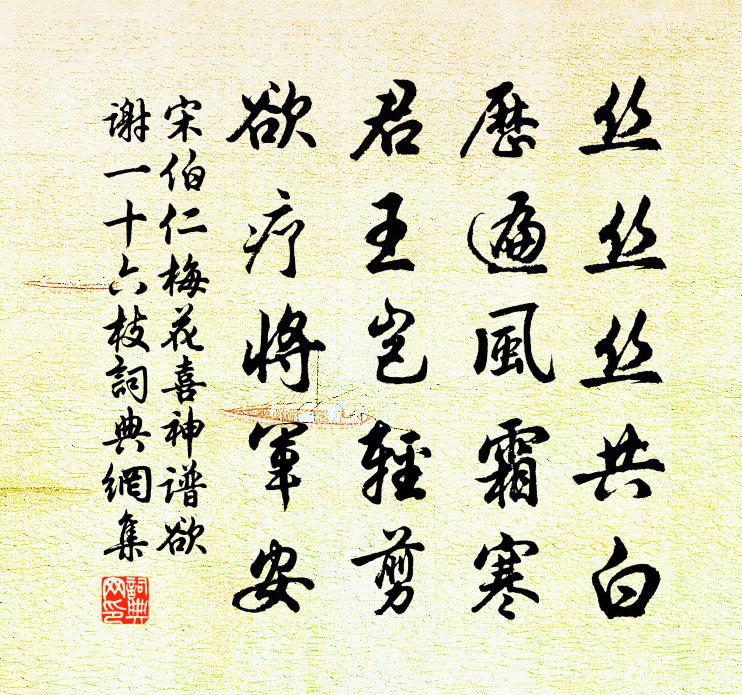 丝丝丝共白
歷遍風霜寒
君王豈輕剪
欲疗將军安
宋伯仁梅花喜神谱欲
谢一十六枝詞典網集
詞典网印